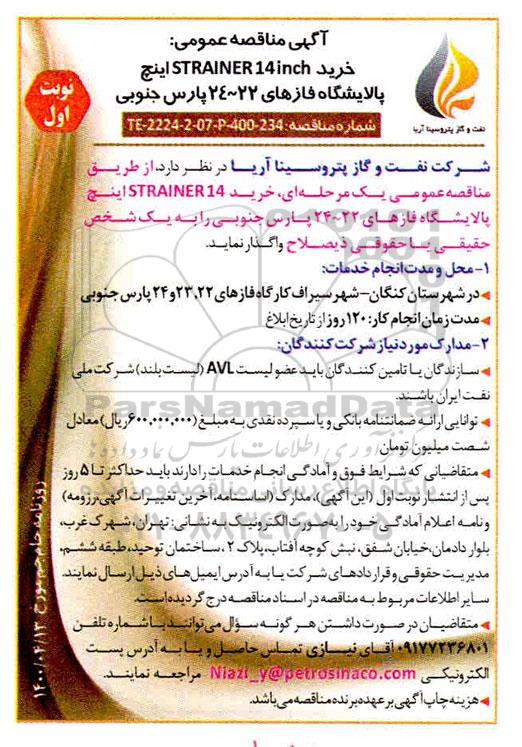 آگهی مناقصه عمومی:
خرید STRAINER 14 inch اینچ
پالایشگاه فازهای ۲۲~۲۴ پارس جنوبی
شماره مناقصه: TE-2224-2-07-P-400-234
نوبت
اول
نفت و گاز پتروسینا آریا
شرکت نفت و گاز پتروسینا آریا در نظر دارد، از طریق
مناقصه عمومی یک مرحله‌ای، خرید STRAINER 14 اینچ
پالایشگاه فازهای ۲۲~۲۴ پارس جنوبی را به یک شخص
حقیقی یا حقوقی ذیصلاح واگذار نماید.
۱- محل و مدت انجام خدمات:
در شهرستان کنگان – شهر سیراف کارگاه فازهای ۲۳،۲۲ و ۲۴ پارس جنوبی
مدت زمان انجام کار: ۱۲۰ روز از تاریخ ابلاغ
۲- مدارک مورد نیاز شرکت کنندگان:
سازندگان یا تامین کنندگان باید عضو لیست AVL (لیست بلند) شرکت ملی
نفت ایران باشند.
توانایی ارائه ضمانتنامه بانکی و یا سپرده نقدی به مبلغ (۶۰۰,۰۰۰,۰۰۰ ریال) معادل
شصت میلیون تومان
متقاضیانی که شرایط فوق و آمادگی انجام خدمات را دارند باید حداکثر تا ۵ روز
پس از انتشار نوبت اول (این آگهی)، مدارک (اساسنامه، آخرین تغییرات آگهی، رزومه)
و نامه اعلام آمادگی خود را به صورت الکترونیک به نشانی: تهران، شهرک غرب،
بلوار دادمان، خیابان شفق، نبش کوچه آفتاب، پلاک ۲، ساختمان توحید، طبقه ششم،
مدیریت حقوقی و قراردادهای شرکت یا به آدرس ایمیل‌های ذیل ارسال نمایند.
سایر اطلاعات مربوط به مناقصه در اسناد مناقصه درج گردیده است.
متقاضیان در صورت داشتن هرگونه سؤال می‌توانند با شماره تلفن
۰۹۱۷۷۲۳۶۸۰۱ آقای نیازی تماس حاصل و یا به آدرس پست
الکترونیکی Niazi_y@petrosinaco.com مراجعه نمایند.
هزینه چاپ آگهی بر عهده برنده مناقصه می‌باشد.
روزنامه جام جم مورخ ۱۴۰۰/۰۴/۱۳
ParsNamadData